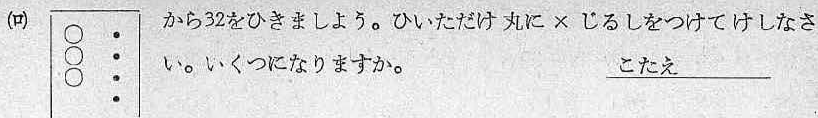 (ロ) から32をひきましよう。ひいただけ 丸に × じるしをつけて けしなさ
い。いくつになりますか。 こたえ